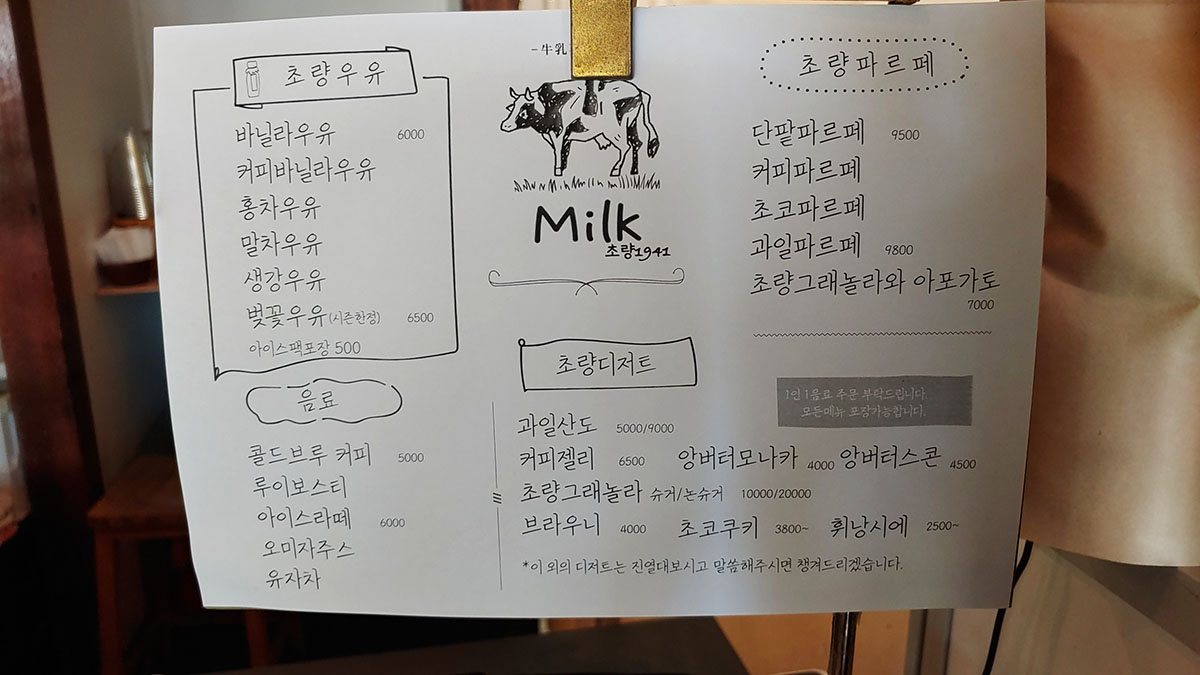 초량우유
바닐라우유 6000
커피바닐라우유
홍차우유
말차우유
생강우유
벚꽃우유(시즌한정) 6500
아이스팩포장 500
음료
콜드브루 커피 5000
루이보스티
아이스라떼 6000
오미자주스
유자차
-牛乳
Milk
초량1941
초량디저트
과일산도 5000/9000
커피젤리 6500 앙버터모나카 4000 앙버터스콘 4500
초량그래놀라 슈거/논슈거 10000/20000
브라우니 4000 초코쿠키 3800~ 휘낭시에 2500~
*이 외의 디저트는 진열대보시고 말씀해주시면 챙겨드리겠습니다.
초량파르페
단팥파르페 9500
커피파르페
초코파르페
과일파르페 9800
초량그래놀라와 아포가토
7000
1인 1음료 주문 부탁드립니다
모든메뉴 포장가능합니다.